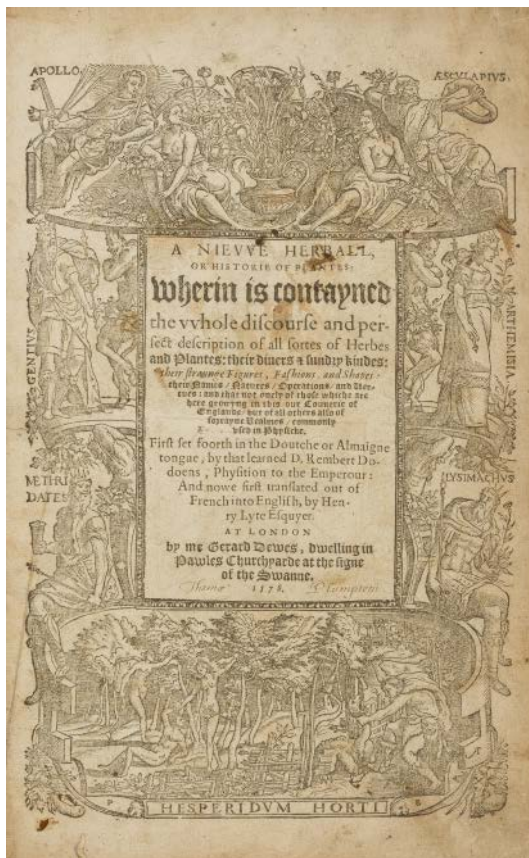 APOLLO.
ÆSCULAPIVS.
A NIEVVE HERBALL,
OR HISTORIE OF PLANTES:
wherin is contayned
the vvhole discourse and per-
fect description of all sortes of Herbes
and Plantes: their diuers & sundry kindes:
their straunge Figures, Fashions, and Shapes:
their Names / Natures / Operations / and Ver-
tues: and that not onely of those whiche are
here growyng in this our Countrie of
Englande / but of all others also of
forrayne Realmes / commonly
vsed in Physicke.
First set foorth in the Doutche or Almaigne
tongue, by that learned D. Rembert Do-
doens, Physition to the Emperour:
And nowe first translated out of
French into English, by Hen-
ry Lyte Esquyer.
AT LONDON
by me Gerard Dewes, dwelling in
Pawles Churchyarde at the signe
of the Swanne.
1578.
Plumpton
GENTIVS
ARTHEMISIA
METHRI
DATES.
LYSIMACHVS
HESPERIDVM HORTI